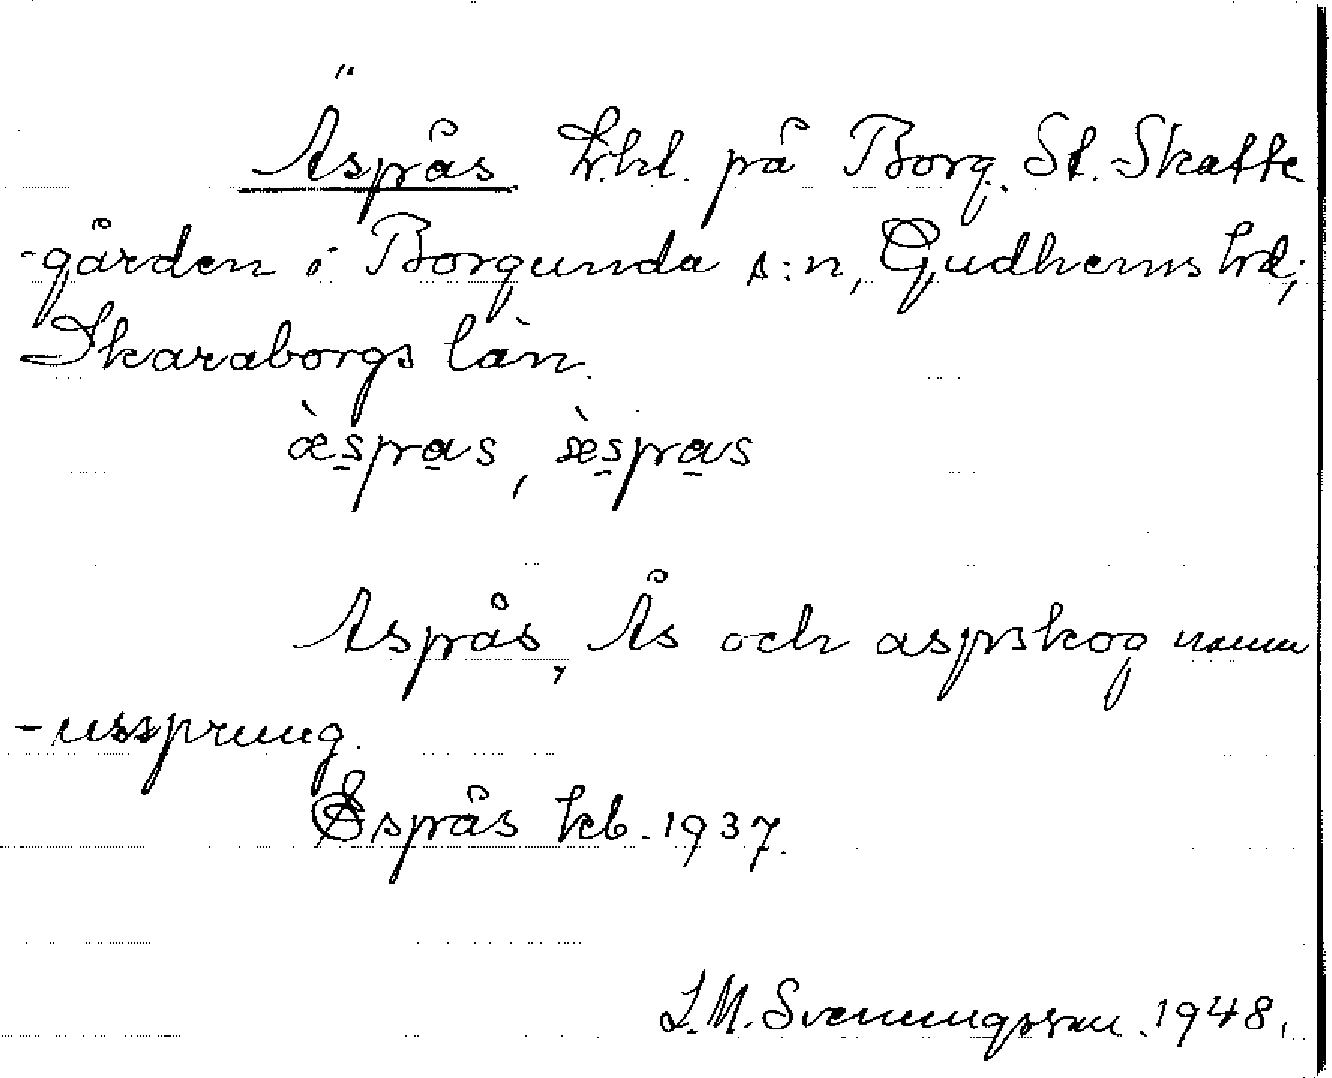 Äsprås tr.hl. på Borg. St. Skatte
-gården i Borgunda s:n, Gudhems hd;
Skaraborgs län.
æ̀spras, æ̀spras
Asprås, Ås och aspskog namn
-ussprung.
Esprås kcb. 1937.
L.M. Svenungsson. 1948.